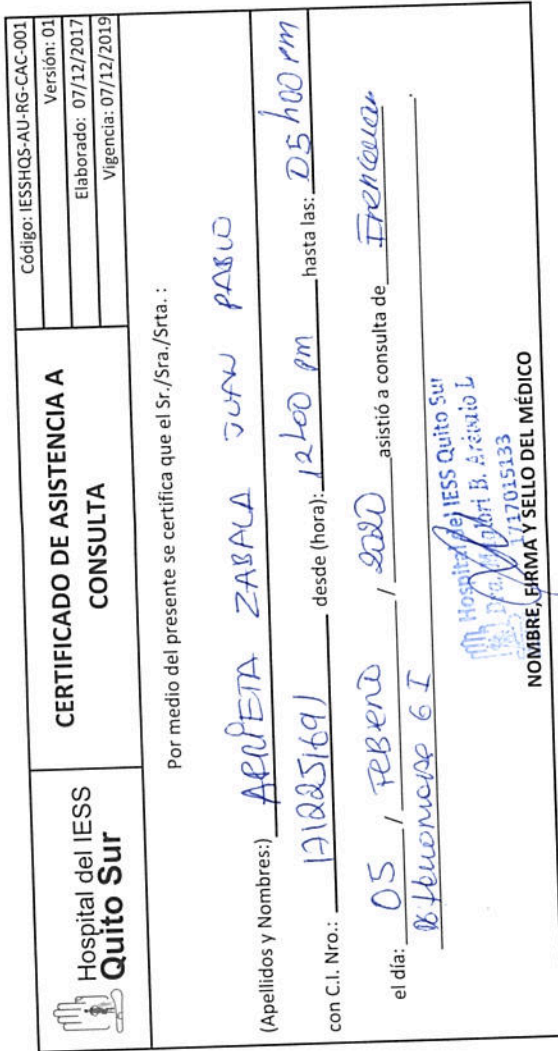 Hospital del IESS
Quito Sur
CERTIFICADO DE ASISTENCIA A
CONSULTA
Código: IESSHQS-AU-RG-CAC-001
Versión: 01
Elaborado: 07/12/2017
Vigencia: 07/12/2019
Por medio del presente se certifica que el Sr./Sra./Srta. :
(Apellidos y Nombres:) ARRIETA ZABALA JUAN PABLO
con C.I. Nro.: 1712251691 desde (hora): 12h00 pm hasta las: 05h00 pm
el día: 05 / Febrero / 2020 asistió a consulta de
6 I
Hospital del IESS Quito Sur
Dra. B. L
1717015133
NOMBRE, FIRMA Y SELLO DEL MÉDICO